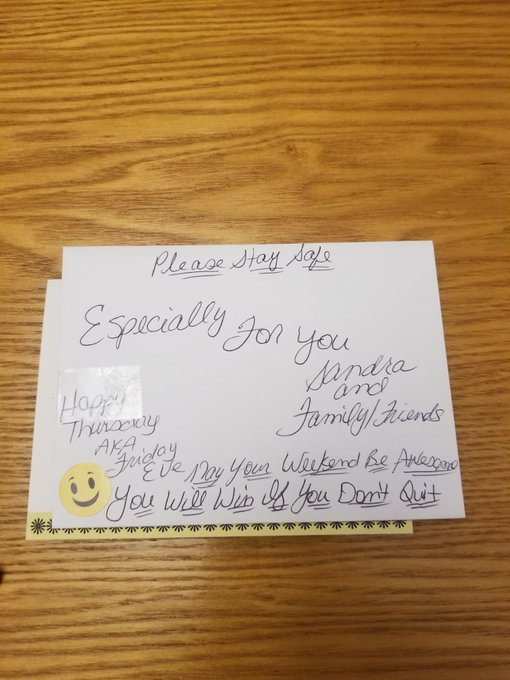 Please Stay Safe
Especially For You
Sandra
and
Family/Friends
Happy
Thursday
AKA
Friday
Eve May Your Weekend Be Awesome
You Will Win If You Don't Quit